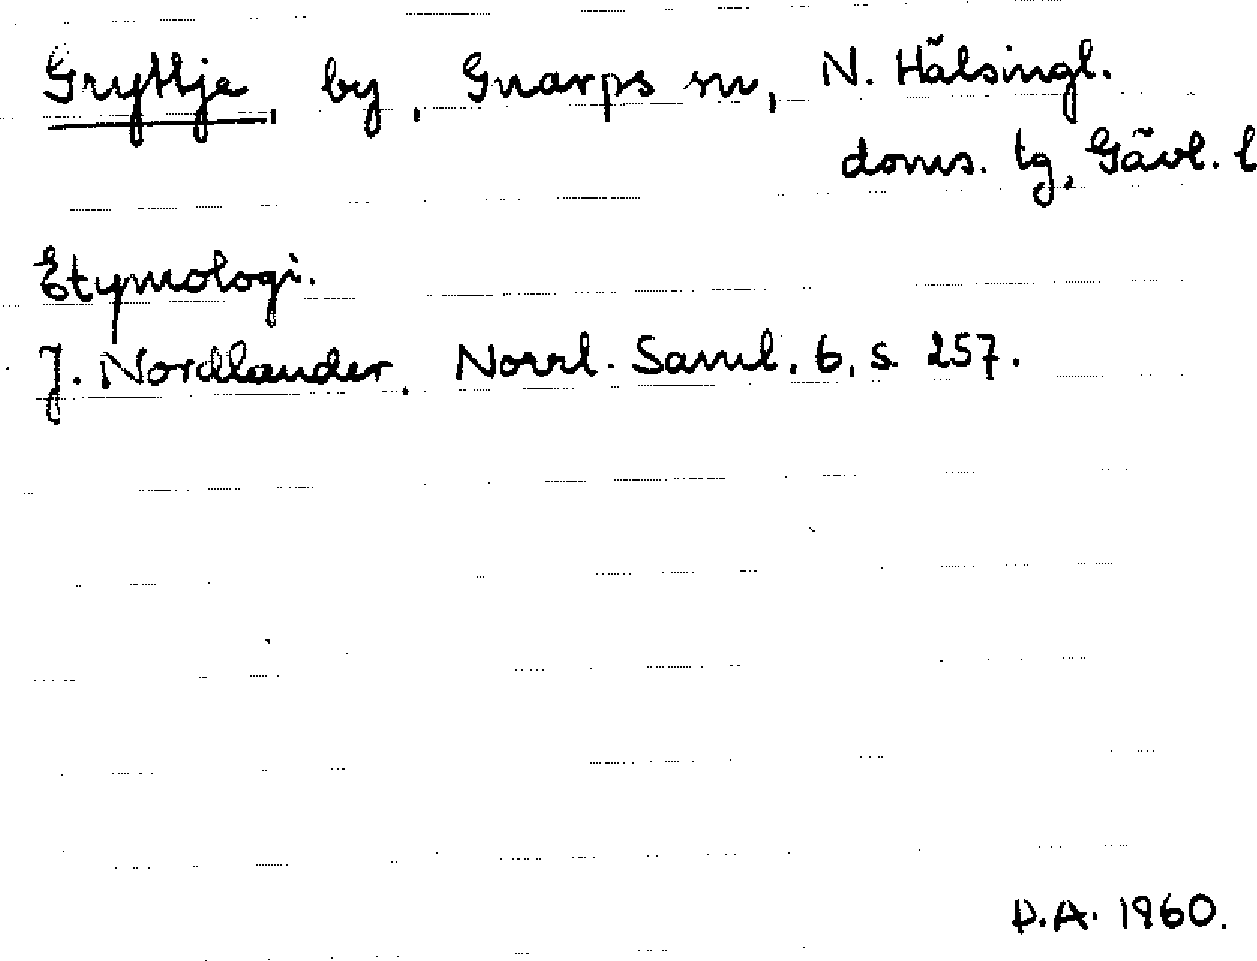 Gryttje, by, Gnarps sn, N. Hälsingl.
doms. tg, Gävl. l
Etymologi.
J. Nordlander. Norrl. Saml. 6, s. 257.
D.A. 1960.